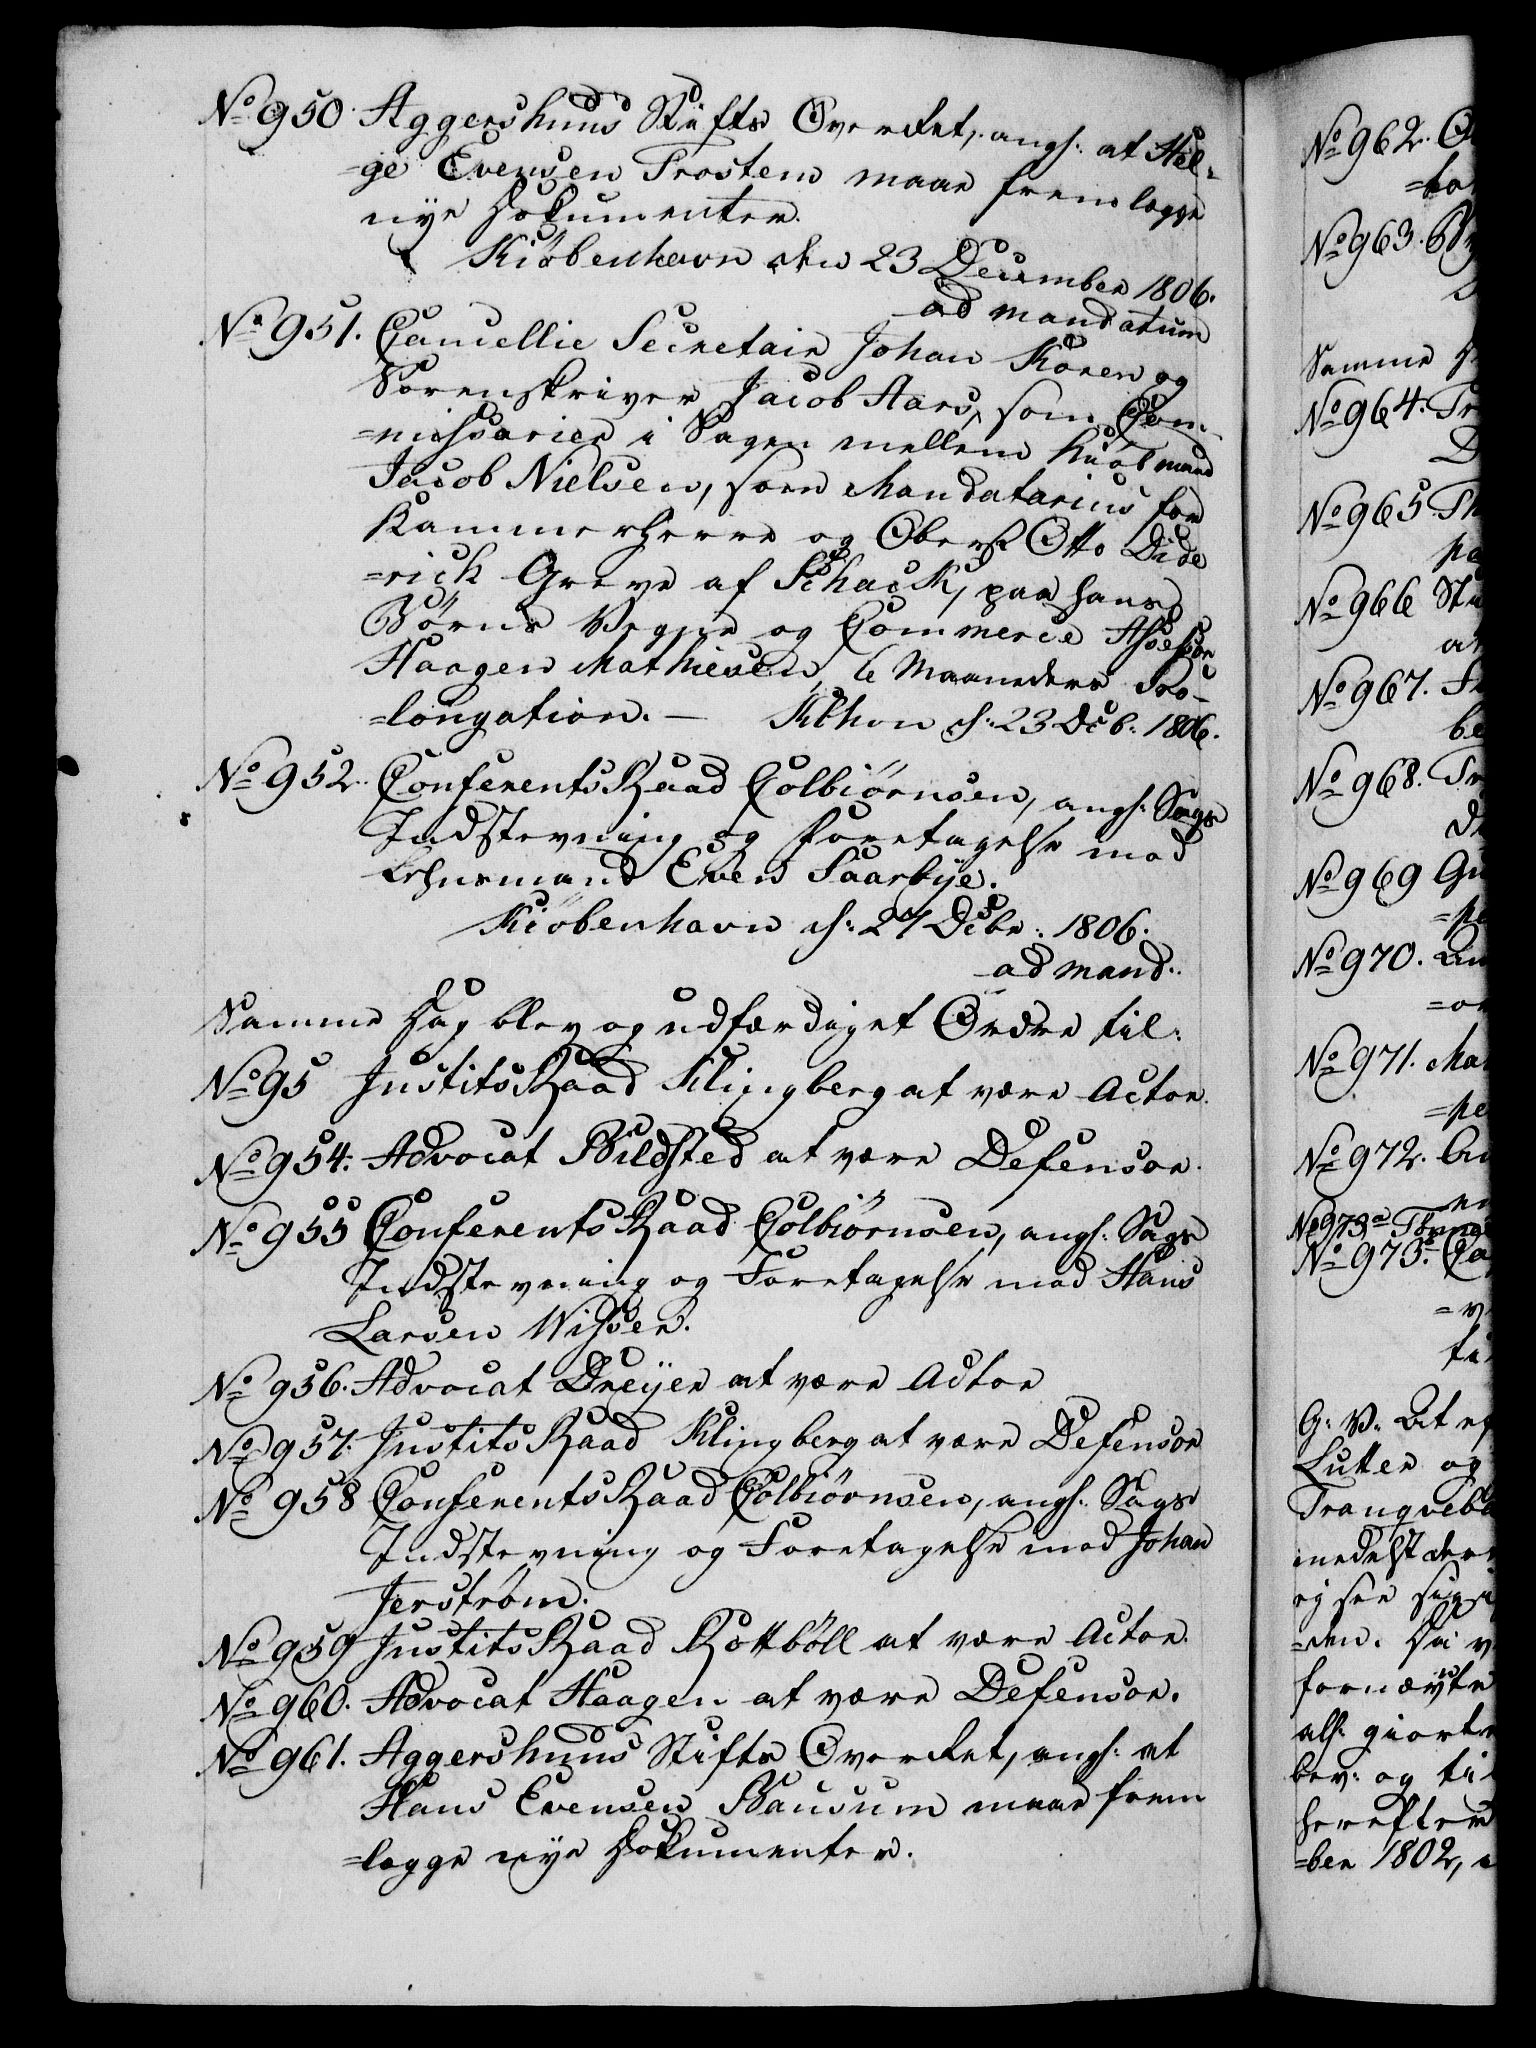 No 950. Aggershuus Stifts Overret, angl: at Hel-
=ge Evensen Trostem maae fremlægge
nye Dokumenter.
Kiöbenhavn den 23 December 1806.
ad mandatum
No 951. Cancellie Secretair Johan Koren og
Sorenskriver Jacob Aars, som Com-
=missarier i Sagen mellem Kiöbmand
Jacob Nielsen, som Mandatarius for
Kammerherre og Oberst Otto Dide
=rich Greve af Schack, paa hans
Börns Vegne og Commerce Assessor
Haagen Mathiesen, 6 Maaneders Pro-
=longation. — Kbhvn d: 23 Dcb: 1806.
No 952. ConferentsRaad Colbiörnsen, angl: Sags
Indstevning og Foretagelse mod
Lehnsmand Even Saarbye.
Kiöbenhavn d: 27 Dcbr: 1806.
ad mand:
Samme Dag blev og udfærdiget Ordre til:
No 95 JustitsRaad Klingberg at være Actor.
No 954. Advocat Bildsted at være Defensor.
No 955 ConferentsRaad Colbiörnsen, angl: Sags
Indstevning og Foretagelse mod Hans
Larsen Wissen.
No 956. Advocat Dreyer at være Actor
No 957. JustitsRaad Klingberg at være Defensor
No 958 ConferentsRaad Colbiörnsen, angl: Sags
Indstevning og Foretagelse mod Johan
Jerström.
No 959 JustitsRaad Rottböll at være Actor.
No 960. Advocat Haagen at være Defensor.
No 961. Aggershuus Stifts Overret, angl: at
Hans Evensen Bausum maae frem
=lægge nye Dokumenter.
No 962.
No 963.
Samme
No 964.
No 965
No 966
No 967.
No 968.
No 969
No 970.
No 971.
No 972.
No 973a
No 973b
G: V: At
Lutter og
Tranqveb
=den. Da
fornævte
als: giort
bev: og
herefter
=ber 1802,